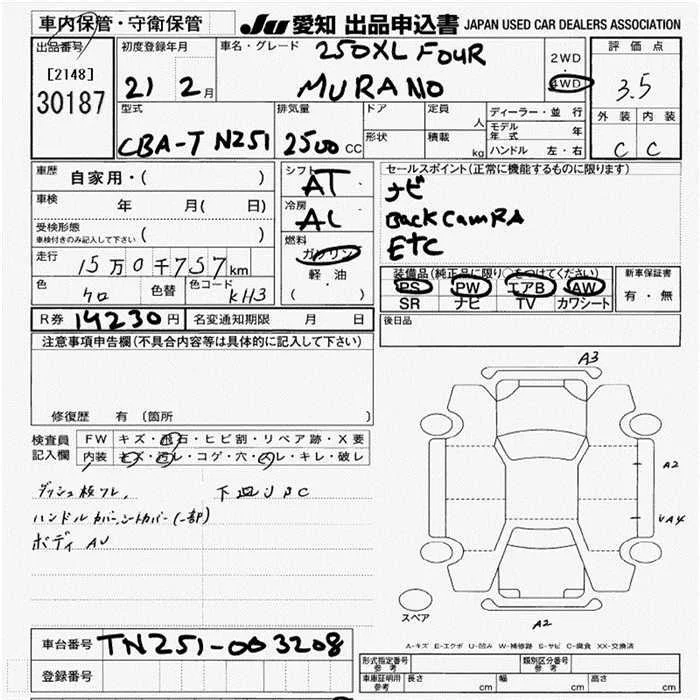 車内保管・守衛保管
JU 愛知 出品申込書 JAPAN USED CAR DEALERS ASSOCIATION
出品番号
[2148]
30187
初度登録年月
21 2月
車名・グレード
250XL FOUR
MURANO
2WD
・
4WD
評価点
3.5
外装 内装
C C
型式
CBA-TNZ51
排気量
2500 CC
ドア
形状
定員
人
積載
kg
ディーラー・並行
モデル年式 年
ハンドル 左・右
車歴 自家用・( )
車検 年 月( 日)
受検形態
車検付きのみ記入して下さい ( )
走行 15万0千757km
色 クロ 色替 色コード KH3
R券 14230円 名変通知期限 月 日
シフト
AT
冷房
AC
燃料
ガソリン
軽油
( )
セールスポイント(正常に機能するものに限ります)
ナビ
BackCamRA
ETC
装備品(純正品に限り○をつけてください)
PS PW エアB AW
SR ナビ TV カワシート
新車保証書
有・無
後日品
注意事項申告欄(不具合内容等は具体的に記入して下さい)
修復歴 有 (箇所 )
検査員記入欄
FW キズ・飛石・ヒビ割・リペア跡・X要
内装 キズ・汚レ・コゲ・穴・スレ・キレ・破レ
ダッシュ板ワレ, 下皿UPC
ハンドルカバー,シートカバー(一部)
ボディAU
A3
A2
UA4
スペア
A2
A-キズ E-エクボ U-凹み W-補修跡 S-サビ C-腐食 XX-交換済
車台番号 TNZ51-003208
登録番号
形式指定番号 参考
類別区分番号 参考
車庫証明用 参考 長さ cm 幅 cm 高さ cm